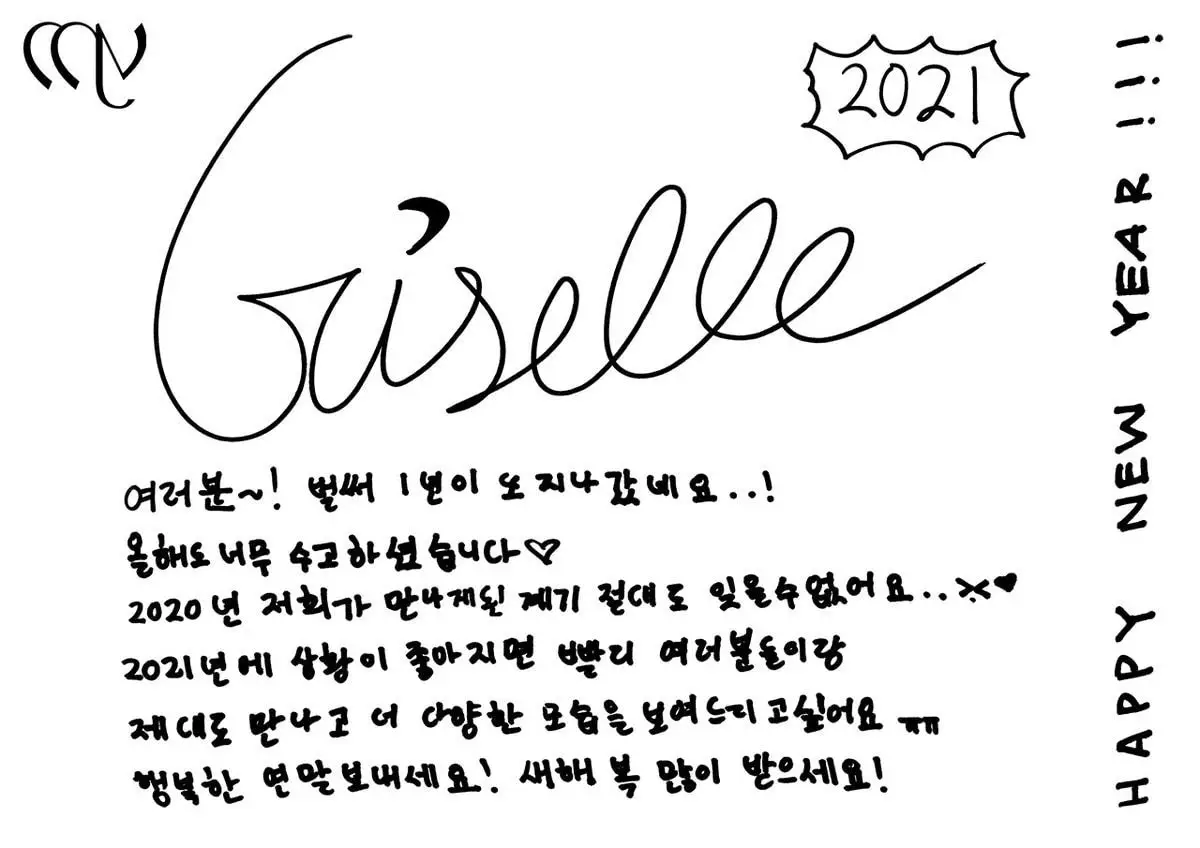 Giselle
2021
여러분~! 벌써 1년이 또 지나갔네요..!
올해도 너무 수고하셨습니다♡
2020년 저희가 만나게된 계기 절대로 잊을수없어요..※♥
2021년에 상황이 좋아지면 빨리 여러분들이랑
제대로 만나고 더 다양한 모습을 보여드리고싶어요 ㅠㅠ
행복한 연말보내세요! 새해 복 많이 받으세요!
HAPPY NEW YEAR!!!